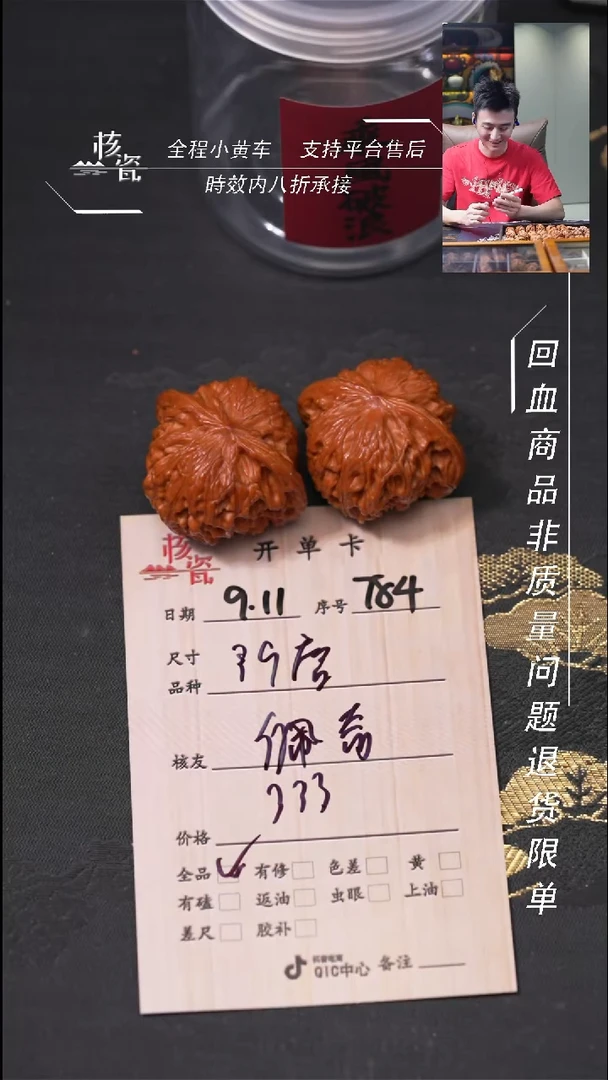 核瓷
全程小黄车 支持平台售后
時效内八折承接
破浪
回血商品非质量问题退货限单
核瓷
开单卡
日期 9.11 序号 T84
尺寸
品种
核友
333
价格
全品 有修 色差 黄
有磕 返油 虫眼 上油
差尺 胶补
抖音电商
QIC中心 备注